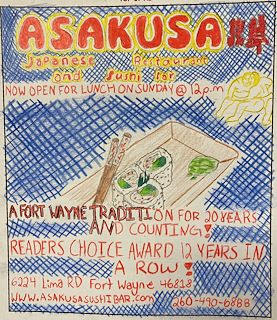 ASAKUSA
Japanese Restaurant
and Sushi bar
NOW OPEN FOR LUNCH ON SUNDAY @ 12p.m
A FORT WAYNE TRADITION FOR 20 YEARS
AND COUNTING!
READERS CHOICE AWARD 12 YEARS IN
A ROW!
6224 Lima RD Fort Wayne 46818
WWW.ASAKUSASUSHIBAR.com 260-490-6888